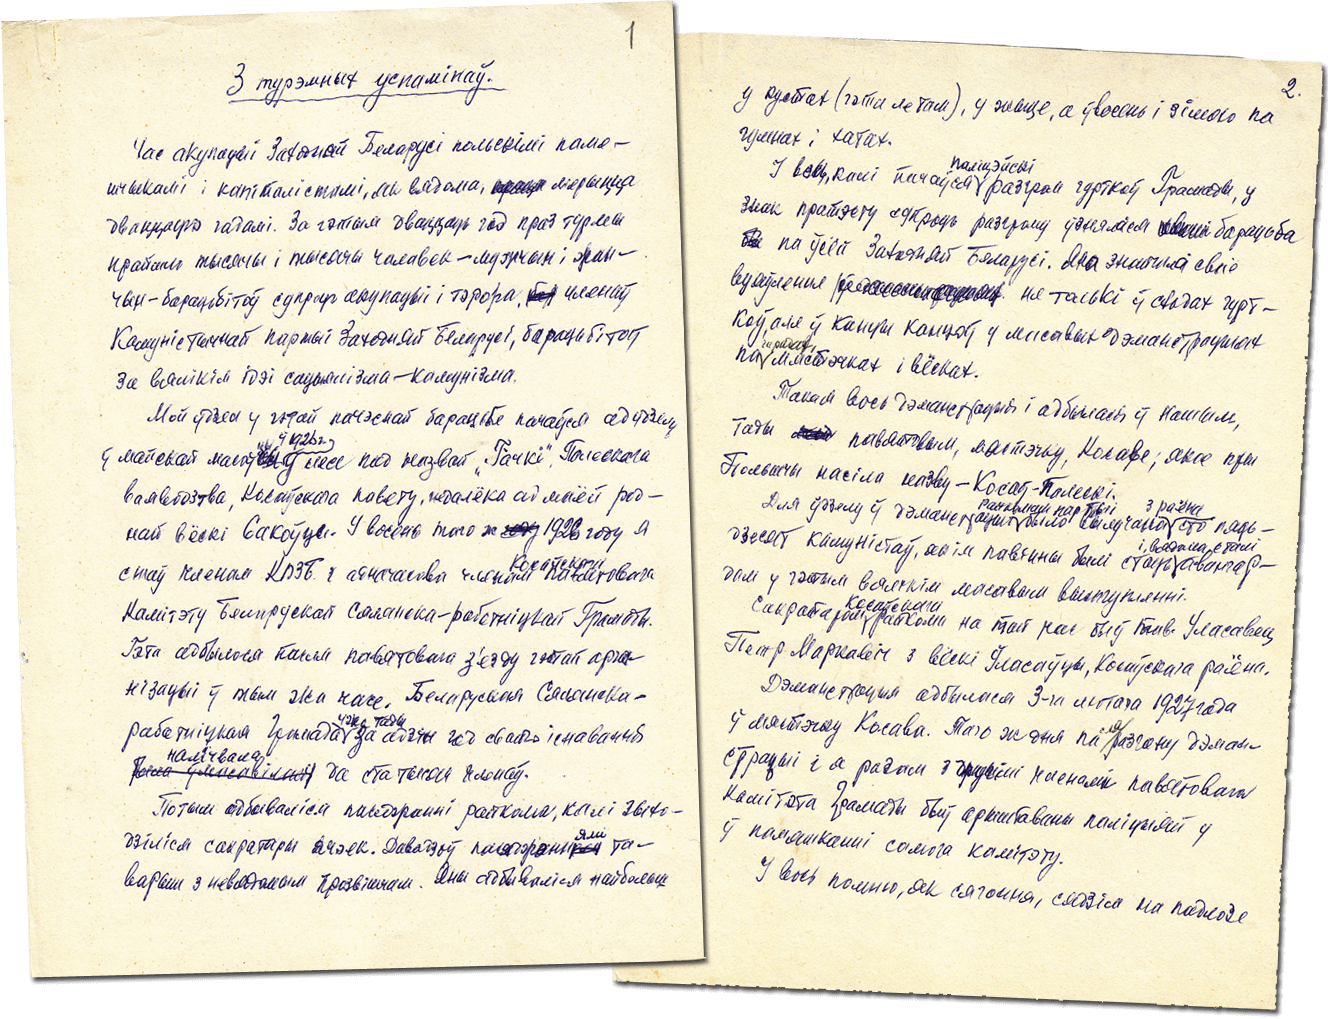 1
З турэмных успамінаў.
Час акупацыі Заходняй Беларусі польскімі паме-
шчыкамі і капіталістамі, як вядома, мерыцца
дваццацю гадамі. За гэтым дваццаць год праз турмы
прайшло тысячы і тысячы чалавек — мужчын і жан-
чын-барацьбітоў супроць акупацыі і тэрора, членаў
Камуністычнай партыі Заходняй Беларусі, барацьбітоў
за вялікія ідэі сацыялізма-камунізма.
Мой удзел у гэтай пачэснай барацьбе пачаўся ад удзелу
ў 1926 г.
ў майскай масоўцы ў лесе пад назвай „Гачкі", Палескага
ваяводзтва, Косаўскага павету, недалёка ад маёй род-
най вёскі Сакоўцы. У восень таго ж 1926 году я
Косаўскага
стаў членам КПЗБ і адначасова членам павятовага
камітэту Беларускай Сялянска-работніцкай Грамады.
Гэта адбылося пасля павятовага з'езду гэтай арга-
нізацыі ў тым жа часе. Беларуская Сялянска-
ужо тады
работніцкая Грамада за адзін год свайго існавання
налічвала
да ста тысяч членаў.
Потым адбываліся пасяджэнні райкома, калі зыхо-
дзіліся сакратары ячэек. Даводзіў пасяджэннямі та-
варыш з невядомым прозвішчам. Яны адбываліся найбольш
2.
у кустах (гэта летам), у жыце, а ўвосень і зімою па
гумнах і хатах.
паліцэйскі
І вось, калі пачаўся разгром гурткоў Грамады, у
знак пратэсту супроць разгрому ўзнялася барацьба
па ўсёй Заходняй Беларусі. Яна знайшла сваё
выяўленне не талькі ў сходах гурт-
коў, але ў канцы канцоў у масавых дэманстрацыях
гарадах,
па мястэчках і вёсках.
Такая вось дэманстрацыя і адбылася ў нашым,
тады павятовым, мястэчку, Косаве, якое пры
Польшчы насіла назву — Косаў-Палескі.
Райкомам партыі з раёна
Для ўдзелу ў дэманстрацыі было вылучана сто пяць-
і, вядома, сталі
дзесят камуністаў, якія павінны былі стаць авангар-
дам у гэтым вялікім масавым выступленні.
Косаўскага
Сакратаром райкома на той час быў тав. Уласавец
Петр Маркавіч з вёскі Уласаўцы, Косаўскага раёна.
Дэманстрацыя адбылася 3-га лютага 1927 года
ў мястэчку Косава. Таго ж дня па разгону дэман-
страцыі і я разам з другімі членамі павятовага
камітэта Грамады быў арыштаваны паліцыяй у
ў памяшканні самога камітэту.
І вось помню, як сягоння, сядзім на падлозе